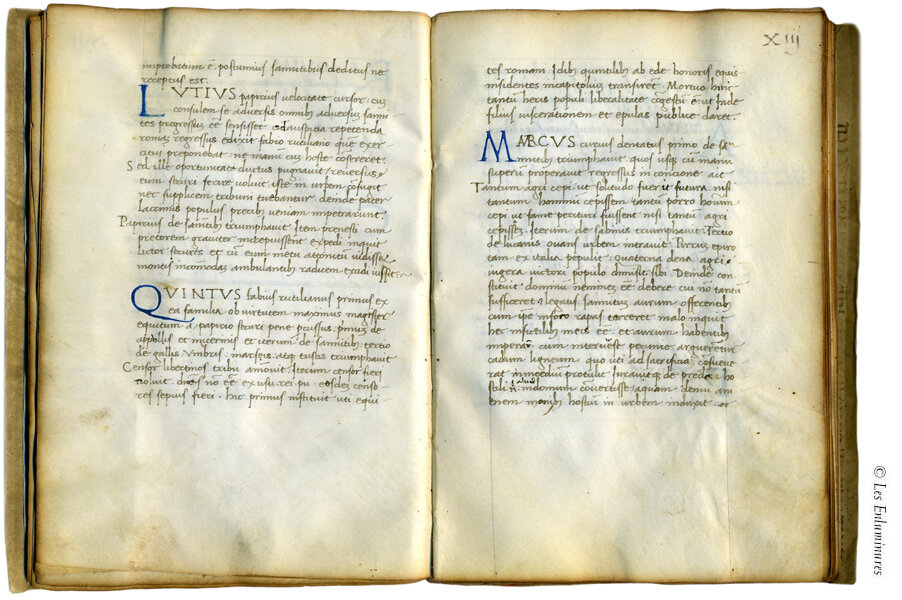 improbatum ē: postumius samnitibus deditus nec
receptus est.
LVTIVS papirius velocitate cursor: cū
consulem se adversis omnib adversus samni
tes progressus eē sensisset ad auspitia repetenda
romā regressus edixit fabio rutiliano que exer
citui preponebat: ne manū cū hoste cosereret.
Sed ille oportunitate ductus pugnavit: reversus
eum securi ferire voluit: iste in urbem cōfugit
nec supplicem tribuni tuebantur: deinde pater
lacrimis populus precib veniam impetrarunt
Papirius de sānitib triumphavit. Item prenesti cum
pretorem graviter increpuisset: expedi inquit
lictor secures: et cū eum metu attonitū vidisset
montis incōmodas ambulantib radicem exidi iussit.
QVINTVS fabius rutilianus primus ex
ea familia ob virtutem maximus: magister
equitum a papirio securi pene percussus. Primū de
appellis et nucernis: et iterum de samnitib: tertio
de gallis. Vmbris: marseis: atq tuscis triumphavit
Censor libertinos tribu amovit. Iterum censor fieri
noluit: dicēs nō eē ex usu rei .pu. eosdē censo
res sepius fieri. hic primus instituit uti equi
XIII
tes romani: Idib quintilib ab ede honoris equis
insidentes in capitoliū transirēt. Mortuo huic
tantū heris populi liberalitate cōgestū ē: ut inde
filius viscerationem et epulas publice daret.
MARCVS curius dentatus primo de sā
mnitib triumphavit: quos usq cū mari
superū properavit regressus in concione ait
Tantum agri cepi ut solitudo fuerit futura nisi
tantum hominū cepissem: tantū porro hoīum
cepi ut fame perituri fuissent nisi tantū agri
cepissē. Iterum de sabinis triumphavit. Tertio
de lucanis ovans urbem intravit. Pirrum epiro
tam ex italia pepulit: quaterna dena agri
iugera viritī populo divisit. sibi Deinde con
stituit dominū: neminē eē debere cui nō tantū
sufficeret: legatis samnitiū aurum offerentib
cum ipse in foco rapas torreret: malo inquit
hec in fictilib meis eē et aurum habentib
imperare: cum interversē pecunie argueretur
cadum ligneum quo uti ad sacrificia cōsueve
rat in mediū protulit iuravitq de preda ho
stili in domum cōvertisse: aquam deinde ani
enem manib hostiū in urbem induxit. ob
© Les Enluminures